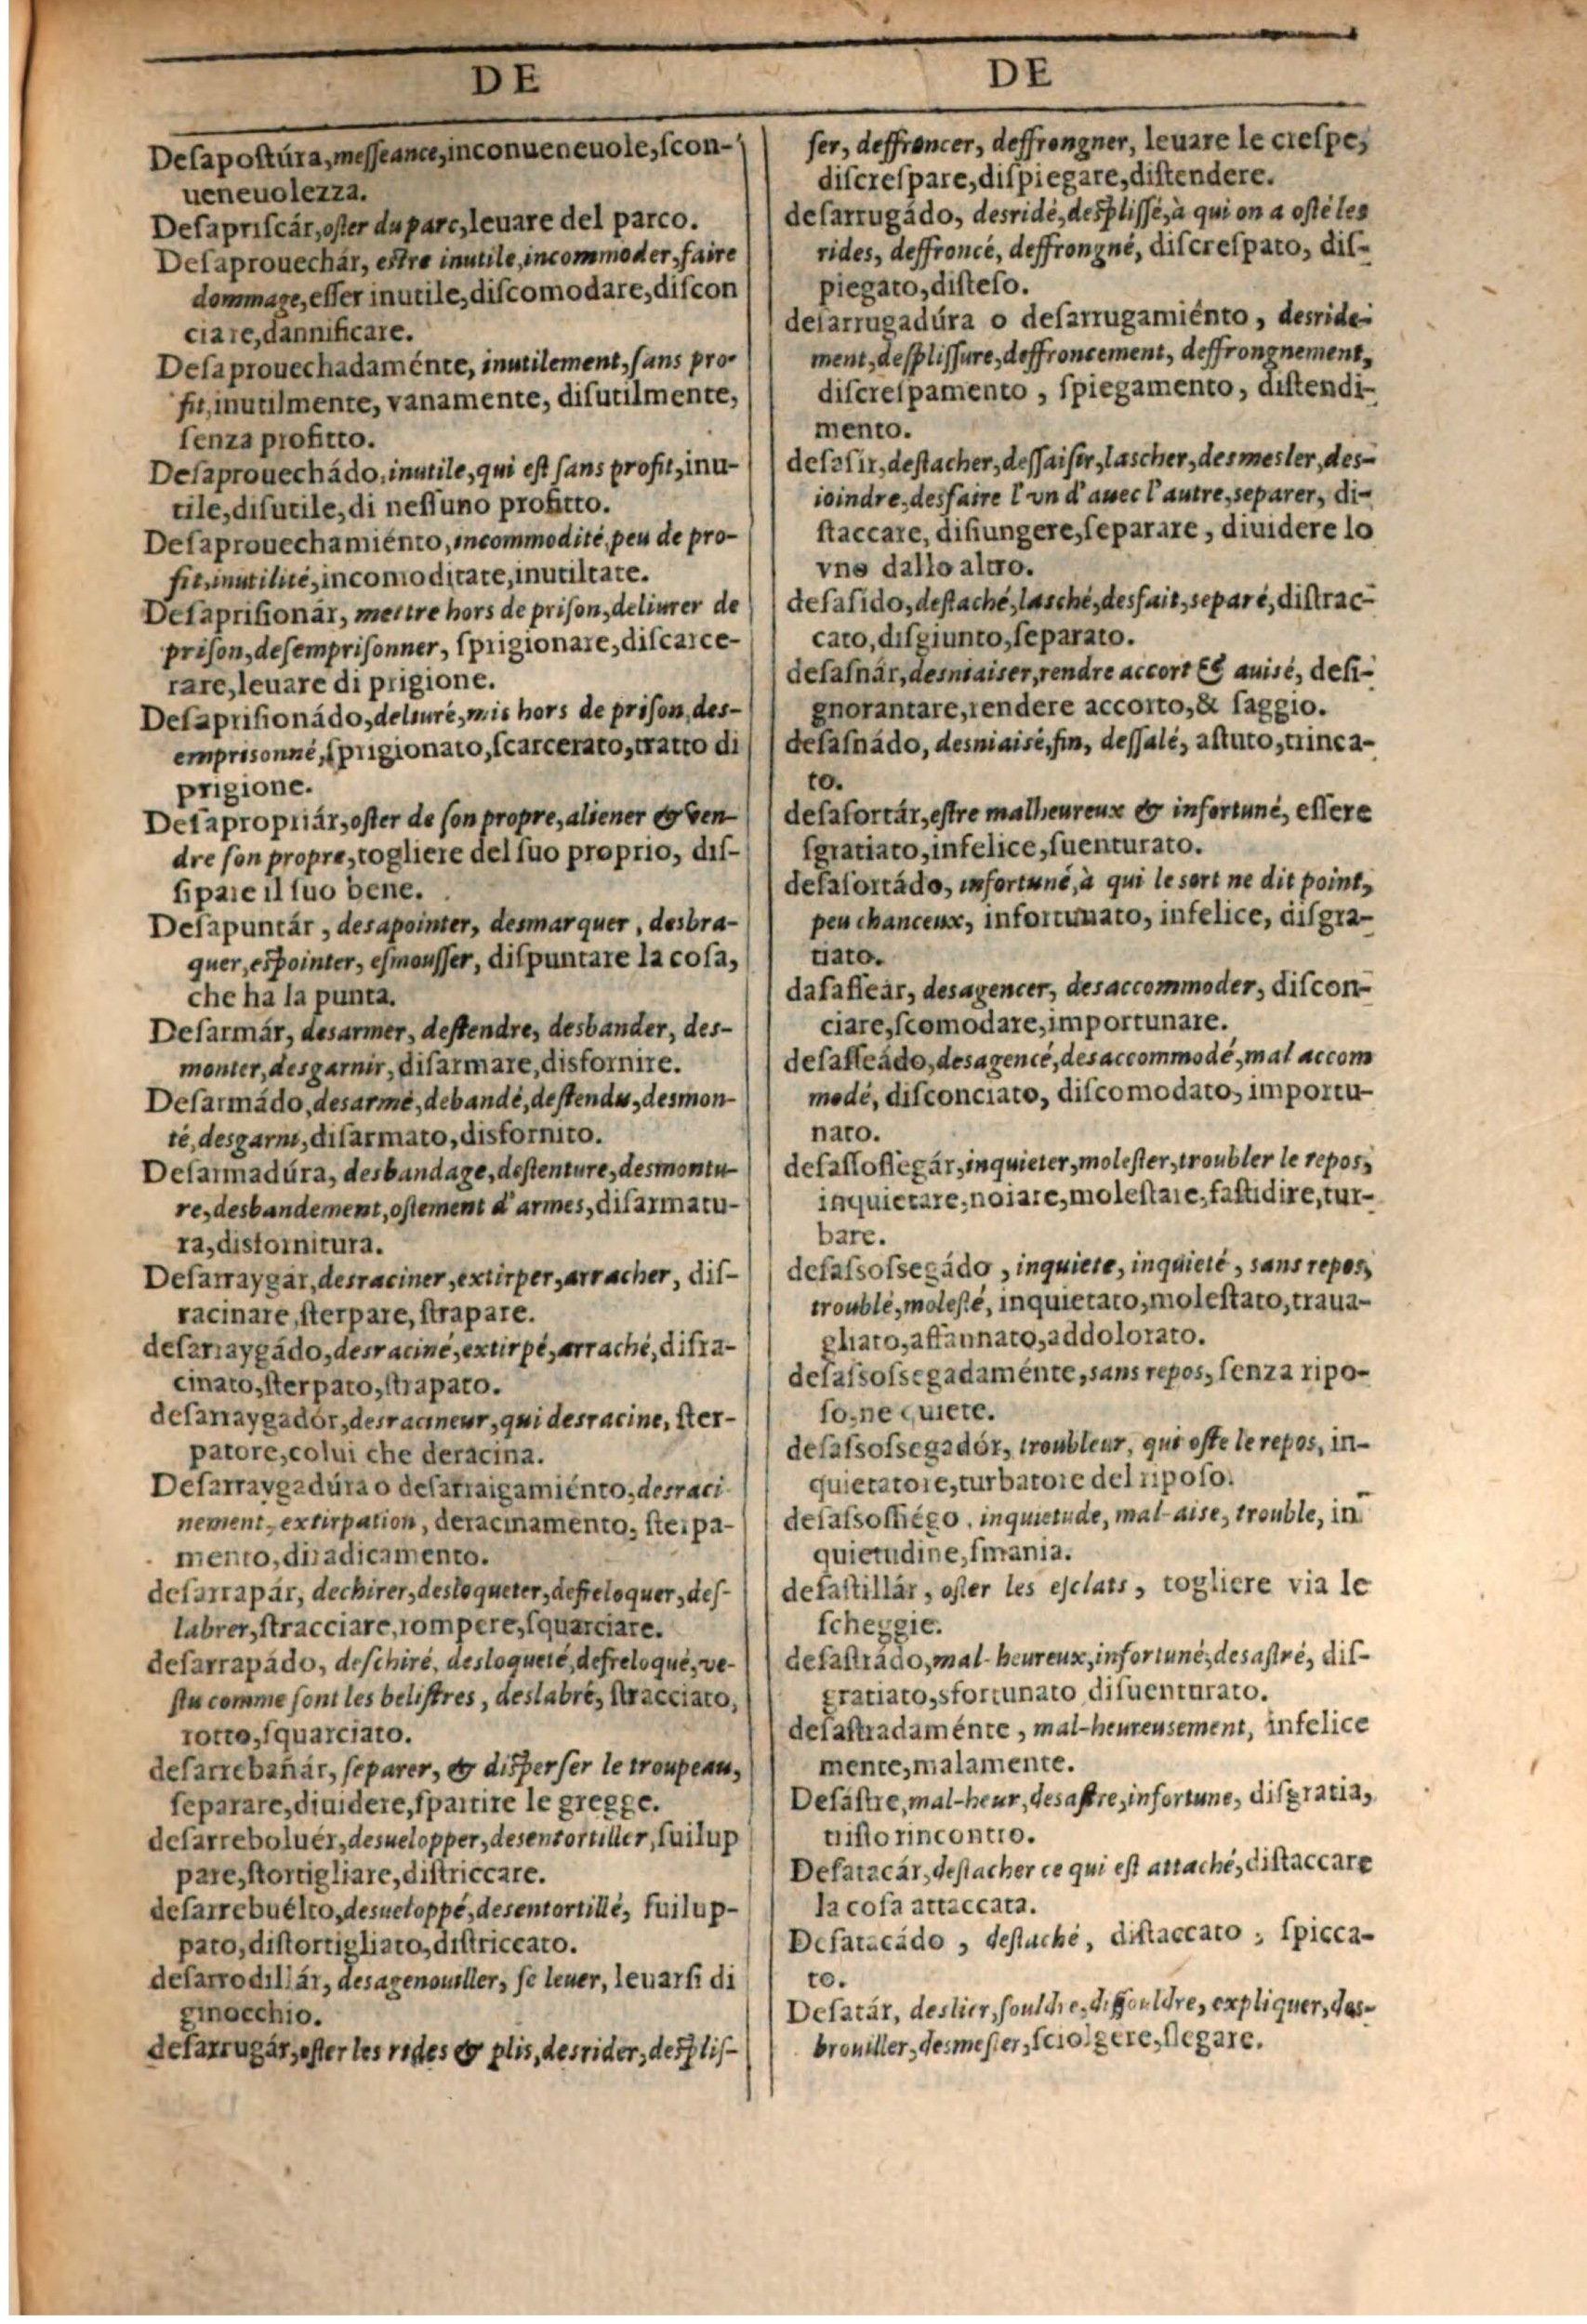 DE
Deſapoſtúra, meſſeance, inconueneuole, ſcon-
ueneuolezza.
Deſapriſcár, oſter du parc, leuare del parco.
Deſaprouechár, eſtre inutile, incommoder, faire
dommage, eſſer inutile, diſcomodare, diſcon
ciare, dannificare.
Deſaprouechadaménte, inutilement, ſans pro-
fit, inutilmente, vanamente, diſutilmente,
ſenza profitto.
Deſaprouechádo, inutile, qui eſt ſans profit, inu-
tile, diſutile, di neſſuno profitto.
Deſaprouechamiénto, incommodité, peu de pro-
fit, inutilité, incomoditate, inutiltate.
Deſapriſionár, mettre hors de priſon, deliurer de
priſon, deſempriſonner, ſprigionare, diſcarce-
rare, leuare di prigione.
Deſapriſionádo, deliuré, mis hors de priſon, des-
emprisonné, ſprigionato, ſcarcerato, tratto di
prigione.
Deſapropriár, oſter de ſon propre, aliener & ven-
dre ſon propre, togliere del ſuo proprio, diſ-
ſipare il ſuo bene.
Deſapuntár, desapointer, desmarquer, desbra-
quer, eſpointer, eſmouſſer, diſpuntare la coſa,
che ha la punta.
Deſarmár, desarmer, deſtendre, desbander, des-
monter, desgarnir, diſarmare, disfornire.
Deſarmádo, desarmé, debandé, deſtendu, desmon-
té, desgarni, diſarmato, disfornito.
Deſarmadúra, desbandage, deſtenture, desmontu-
re, desbandement, oſtement d'armes, diſarmatu-
ra, disfornitura.
Deſarraygár, desraciner, extirper, arracher, diſ-
racinare, ſterpare, ſtrapare.
deſarraygádo, desraciné, extirpé, arraché, diſra-
cinato, ſterpato, ſtrapato.
deſarraygadór, desracineur, qui desracine, ſter-
patore, colui che deracina.
Deſarraygadúra o deſarraigamiénto, desraci-
nement, extirpation, deracinamento, ſterpa-
mento, diradicamento.
deſarrapár, dechirer, desloqueter, defreloquer, deſ-
labrer, ſtracciare, rompere, ſquarciare.
deſarrapádo, deſchiré, desloqueté, defreloqué, ve-
ſtu comme ſont les beliſtres, deslabré, ſtracciato,
rotto, ſquarciato.
deſarrebañár, ſeparer, & diſperſer le troupeau,
ſeparare, diuidere, ſpartire le gregge.
deſarreboluér, desuelopper, desentortiller, ſuilup
pare, ſtortigliare, diſtriccare.
deſarrebuélto, desueloppé, desentortillé, ſuilup-
pato, diſtortigliato, diſtriccato.
deſarrodillár, desagenouiller, ſe leuer, leuarſi di
ginocchio.
deſarrugár, oſter les rides & plis, desrider, deſpliſ-
DE
ſer, deffroncer, deffrongner, leuare le creſpe,
diſcreſpare, diſpiegare, diſtendere.
deſarrugádo, desridé, deſpliſſé, à qui on a oſté les
rides, deffroncé, deffrongné, diſcreſpato, diſ-
piegato, diſteſo.
deſarrugadúra o deſarrugamiénto, desride-
ment, deſpliſſure, deffroncement, deffrongnement,
diſcreſpamento, ſpiegamento, diſtendi-
mento.
deſaſir, deſtacher, deſſaiſir, lascher, desmesler, des-
ioindre, desfaire l'vn d'auec l'autre, separer, di-
ſtaccare, diſiungere, ſeparare, diuidere lo
vno dallo altro.
deſaſido, deſtaché, lasché, desfait, separé, diſtrac-
cato, diſgiunto, ſeparato.
deſaſnár, desniaiser, rendre accort & auisé, deſi-
gnorantare, rendere accorto, & ſaggio.
deſaſnádo, desniaisé, fin, deſſalé, aſtuto, trinca-
to.
deſaſortár, eſtre malheureux & infortuné, eſſere
ſgratiato, infelice, ſuenturato.
deſaſortádo, infortuné, à qui le sort ne dit point,
peu chanceux, infortunato, infelice, diſgra-
tiato.
daſaſſeár, desagencer, desaccommoder, diſcon-
ciare, ſcomodare, importunare.
deſaſſeádo, desagencé, desaccommodé, mal accom
modé, diſconciato, diſcomodato, importu-
nato.
deſaſſoſſegár, inquieter, moleſter, troubler le repos,
inquietare, noiare, moleſtare, faſtidire, tur-
bare.
deſaſsoſsegádo, inquiete, inquieté, sans repos,
troublé, moleſté, inquietato, moleſtato, traua-
gliato, affannato, addolorato.
deſaſsoſsegadaménte, sans repos, ſenza ripo-
ſo, ne quiete.
deſaſsoſsegadór, troubleur, qui oſte le repos, in-
quietatore, turbatore del ripoſo.
deſaſsoſſiégo, inquietude, mal-aise, trouble, in
quietudine, ſmania.
deſaſtillár, oſter les eſclats, togliere via le
ſcheggie.
deſaſtrádo, mal-heureux, infortuné, desaſtré, diſ-
gratiato, sfortunato diſuenturato.
deſaſtradaménte, mal-heureusement, infelice
mente, malamente.
Deſáſtre, mal-heur, desaſtre, infortune, diſgratia,
triſto rincontro.
Deſatacár, deſtacher ce qui eſt attaché, diſtaccare
la coſa attaccata.
Deſatacádo, deſtaché, diſtaccato, ſpicca-
to.
Deſatár, deslier, ſouldre, diſſouldre, expliquer, des-
brouiller, desmesler, ſciolgere, ſlegare.